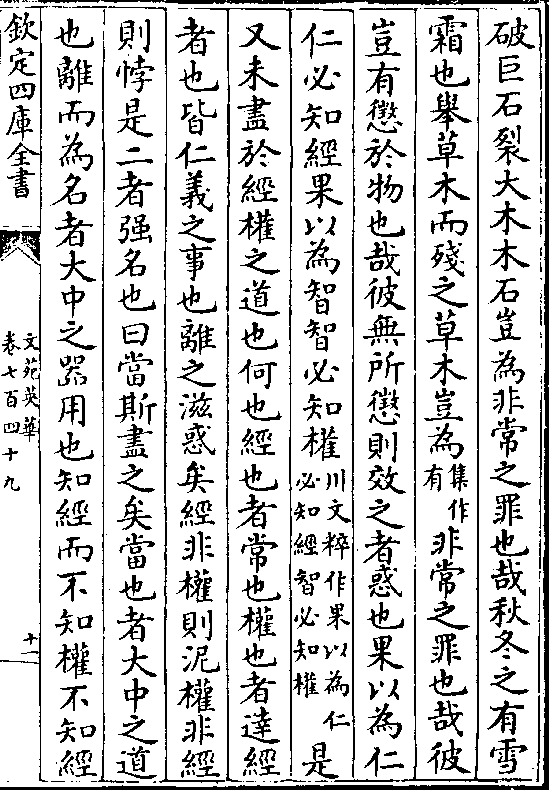 破巨石裂大木木石豈為非常之罪也哉秋冬之有雪
霜也舉草木而殘之草木豈為集作有非常之罪也哉彼
豈有懲於物也哉彼無所懲則效之者惑也果以為仁
仁必知經果以為智智必知權川文粹作果以為仁必知經智必知權是
又未盡於經權之道也何也經也者常也權也者達經
者也皆仁義之事也離之滋惑矣經非權則泥權非經
則悖是二者强名也曰當斯盡之矣當也者大中之道
也離而為名者大中之器用也知經而不知權不知經
欽定四庫全書
文苑英華
卷七百四十九
十一